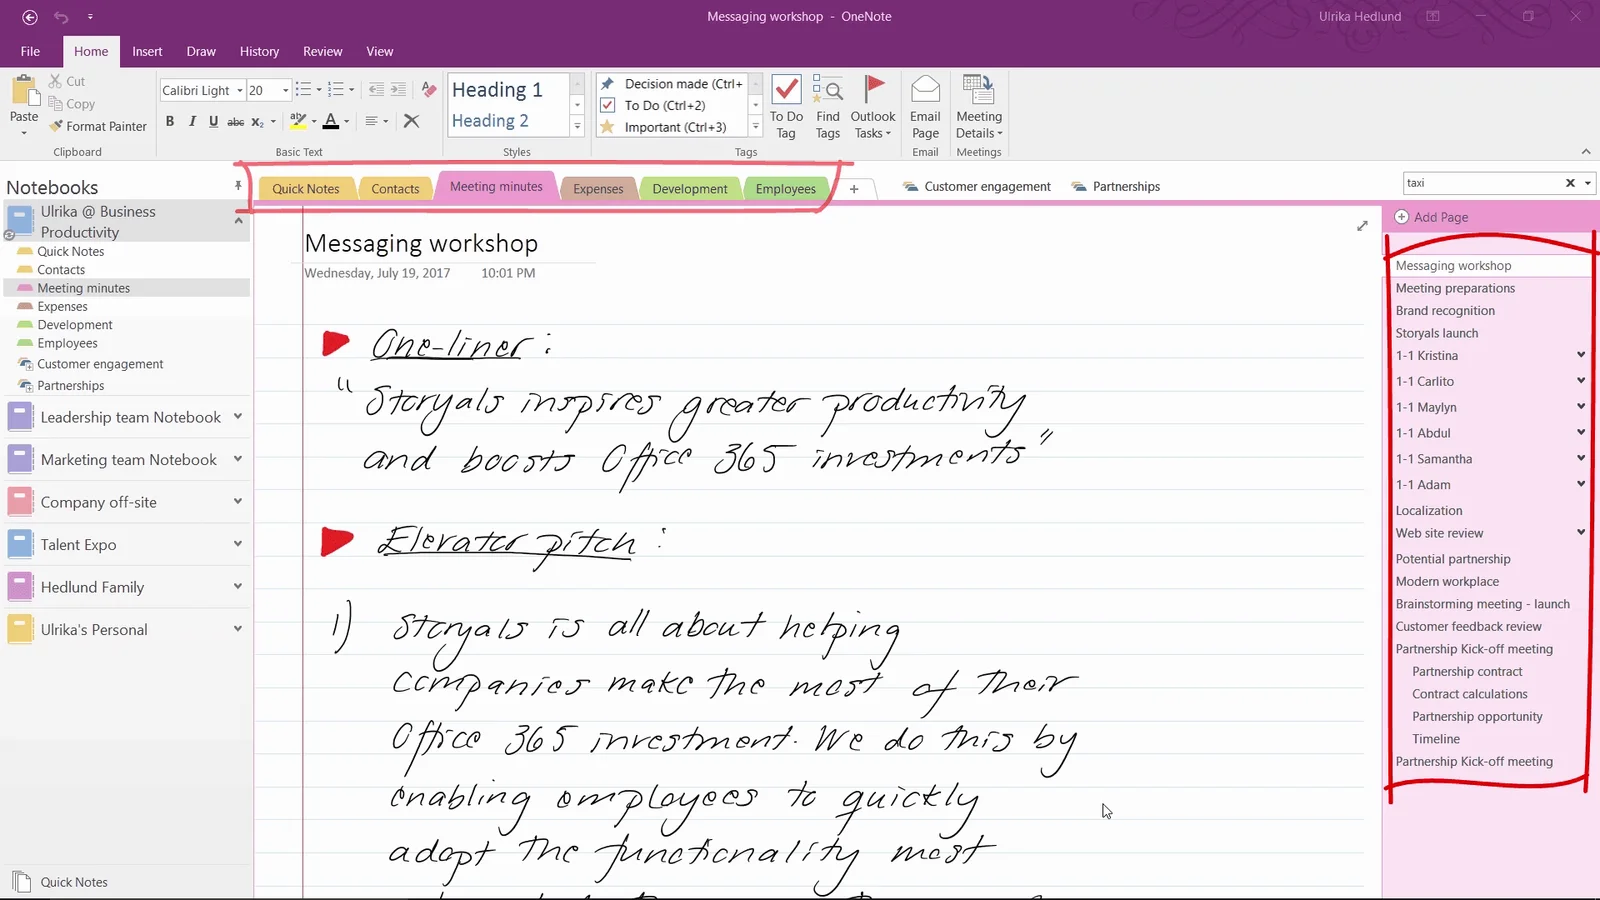 Messaging workshop - OneNote
Ulrika Hedlund
File Home Insert Draw History Review View
Paste
Cut
Copy
Format Painter
Clipboard
Calibri Light 20
B I U abc X₂ A
Basic Text
Heading 1
Heading 2
Styles
Decision made (Ctrl+
To Do (Ctrl+2)
Important (Ctrl+3)
Tags
To Do Tag
Find Tags
Outlook Tasks
Email Page
Email
Meeting Details
Meetings
Notebooks
Quick Notes Contacts Meeting minutes Expenses Development Employees + Customer engagement Partnerships
taxi
Ulrika @ Business
Productivity
Quick Notes
Contacts
Meeting minutes
Expenses
Development
Employees
Customer engagement
Partnerships
Leadership team Notebook
Marketing team Notebook
Company off-site
Talent Expo
Hedlund Family
Ulrika's Personal
Quick Notes
Messaging workshop
Wednesday, July 19, 2017 10:01 PM
One-liner :
"Storyals inspires greater productivity
and boosts Office 365 investments"
Elevator pitch :
1) Storyals is all about helping
companies make the most of their
Office 365 investment. We do this by
enabling employees to quickly
adopt the functionality most
Add Page
Messaging workshop
Meeting preparations
Brand recognition
Storyals launch
1-1 Kristina
1-1 Carlito
1-1 Maylyn
1-1 Abdul
1-1 Samantha
1-1 Adam
Localization
Web site review
Potential partnership
Modern workplace
Brainstorming meeting - launch
Customer feedback review
Partnership Kick-off meeting
Partnership contract
Contract calculations
Partnership opportunity
Timeline
Partnership Kick-off meeting